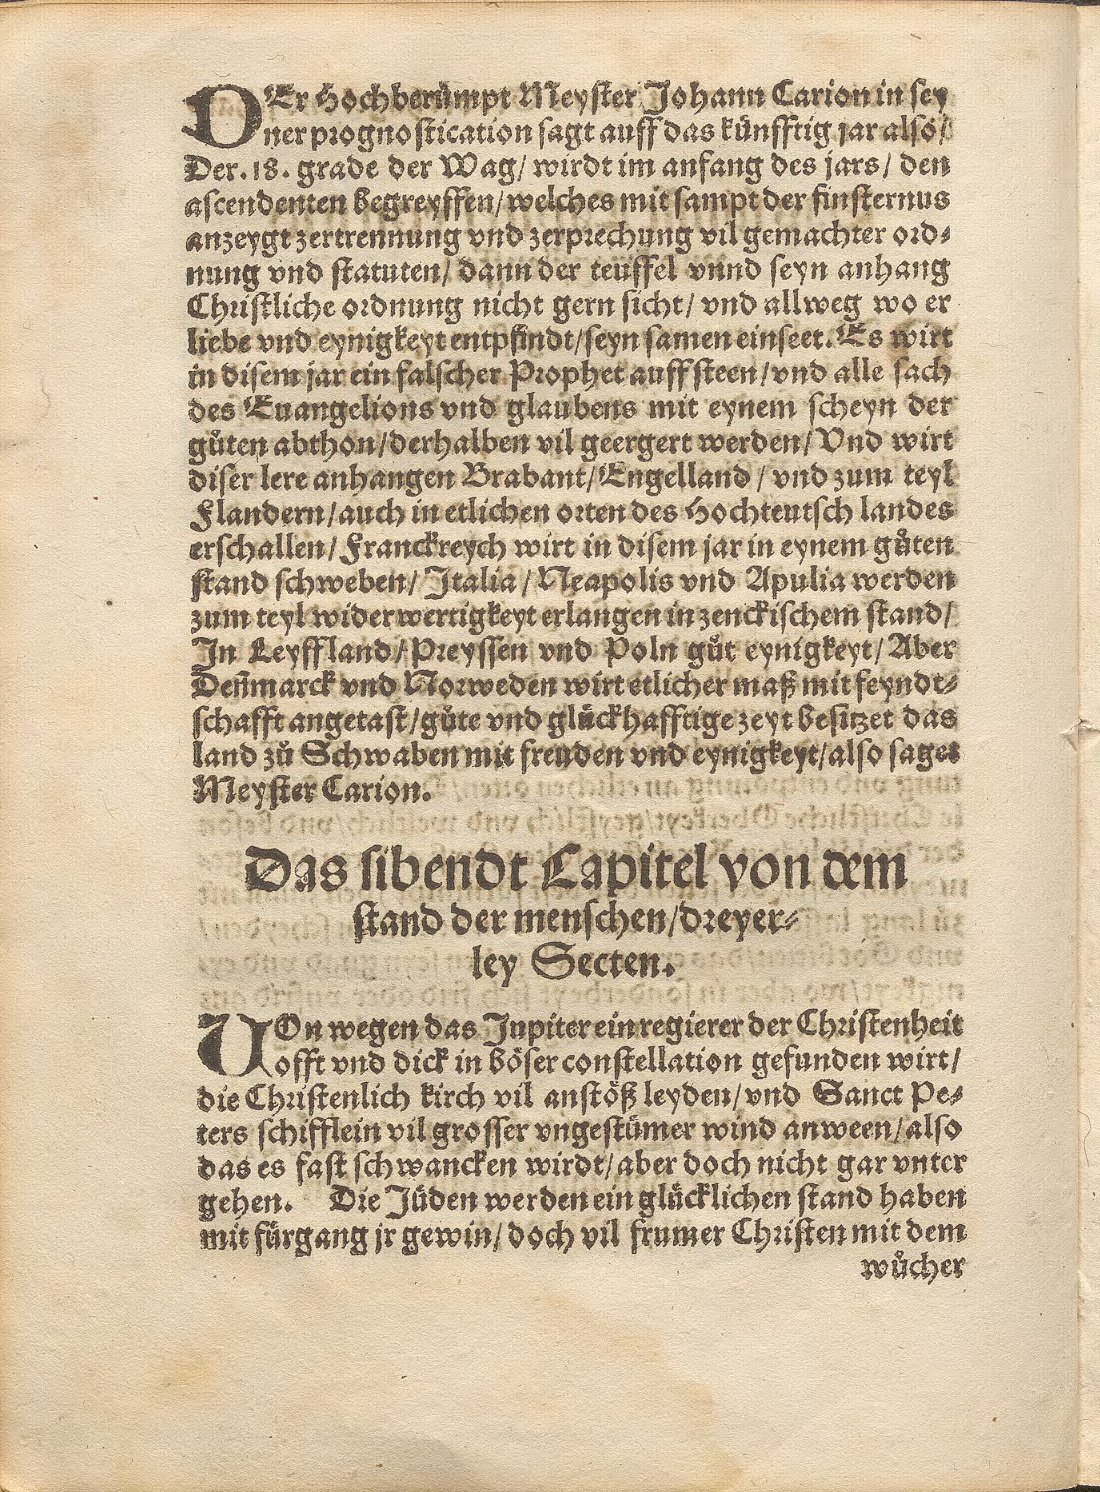 DEr Hochberümpt Meyster Johann Carion in sey
ner prognostication sagt auff das künfftig jar also/
Der. 18. grade der Wag/ wirdt im anfang des jars/ den
ascendenten begreyffen/ welches mit sampt der finsternus
anzeygt zertrennung vnd zerprechung vil gemachter ord⸗
nung vnd statuten/ dann der teuffel vnnd seyn anhang
Christliche ordnung nicht gern sicht/ vnd allweg wo er
liebe vnd eynigkeyt entpfindt/ seyn samen einseet. Es wirt
in disem jar ein falscher Prophet auff steen/ vnd alle sach
des Euangelions vnd glaubens mit eynem scheyn der
gůten abthon/ derhalben vil geergert werden/ Vnd wirt
diser lere anhangen Brabant/ Engelland/ vnd zum teyl
Flandern/ auch in etlichen orten des Hochteutsch landes
erschallen/ Franckreych wirt in disem jar in eynem gůten
stand schweben/ Italia/ Neapolis vnd Apulia werden
zum teyl widerwertigkeyt erlangen in zenckischem stand/
In Leyffland/ Preyssen vnd Poln gůt eynigkeyt/ Aber
Deñmarck vnd Norweden wirt etlicher maß mit feyndt⸗
schafft angetast/ gůte vnd glückhafftige zeyt besitzet das
land zů Schwaben mit freuden vnd eynigkeyt/ also saget
Meyster Carion.
Das sibendt Capitel von dem
stand der menschen/ dreyer⸗
ley Secten.
VOn wegen das Jupiter ein regierer der Christenheit
offt vnd dick in böser constellation gefunden wirt/
die Christenlich kirch vil anstöß leyden/ vnd Sanct Pe⸗
ters schifflein vil grosser vngestümer wind anween/ also
das es fast schwancken wirdt/ aber doch nicht gar vnter
gehen. Die Jüden werden ein glücklichen stand haben
mit fürgang jr gewin/ doch vil frumer Christen mit dem
wůcher